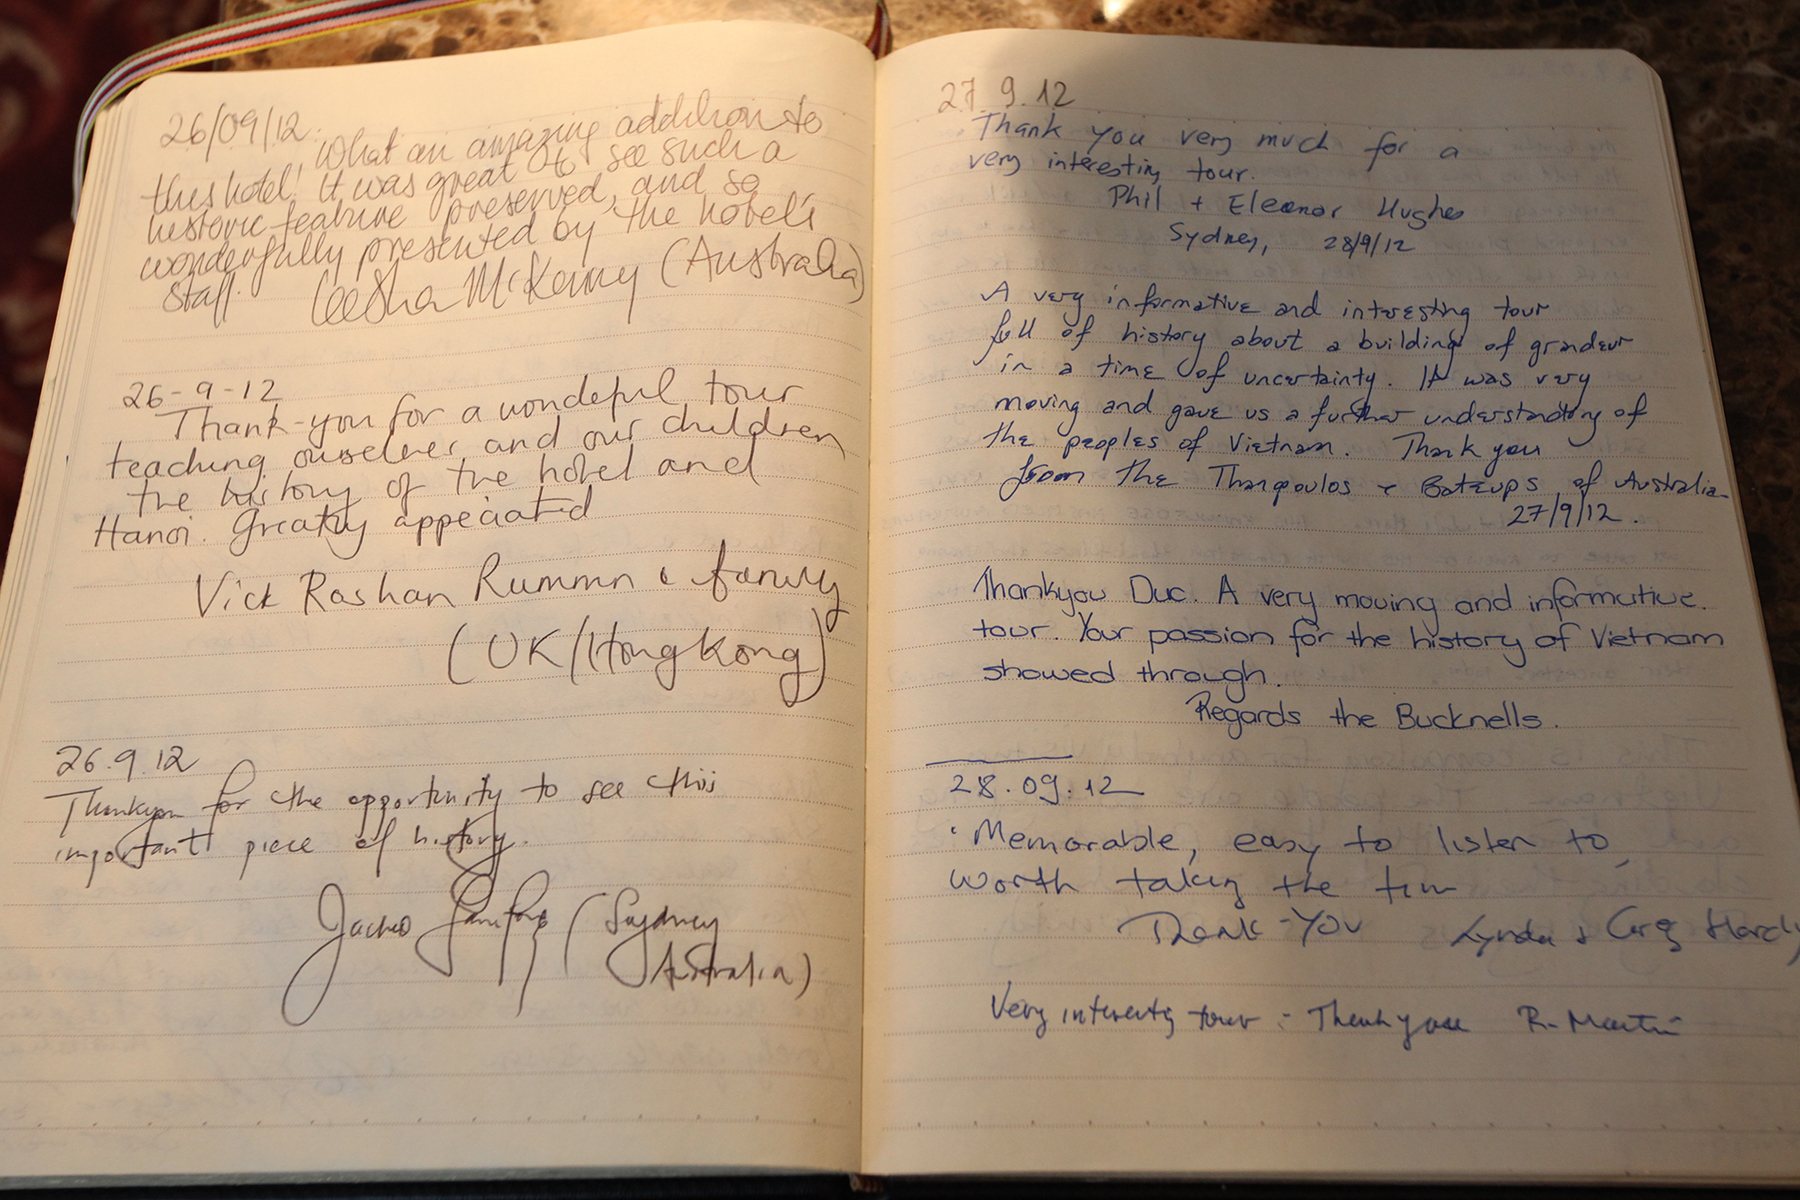 26/09/12:
What an amazing addition to
this hotel! It was great to see such a
historic feature preserved, and so
wonderfully presented by the hotel's
staff.
McKenny (Australia)
26-9-12
Thank-you for a wondeful tour
teaching ourselves and our children
the history of the hotel and
Hanoi. Greatly appeciated
Vick Roshan Rummn & family
(UK/HongKong)
26.9.12
Thankyou for the opportunity to see this
important piece of history.
(Sydney
Australia)
27.9.12
Thank you very much for a
very interesting tour.
Phil + Eleanor Hughes
Sydney, 28/9/12
A very informative and interesting tour
full of history about a building of grandeur
in a time of uncertainty. It was very
moving and gave us a further understanding of
the peoples of Vietnam. Thank you
from the Thanpoulos & Bateups of Australia
27/9/12.
Thankyou Duc. A very moving and informative.
tour. Your passion for the history of Vietnam
showed through.
Regards the Bucknells.
28.09.12
Memorable, easy to listen to,
worth taking the tim
Thank-You Lynda & Greg Hardy
Very interesty tour - Thank you R. Martin